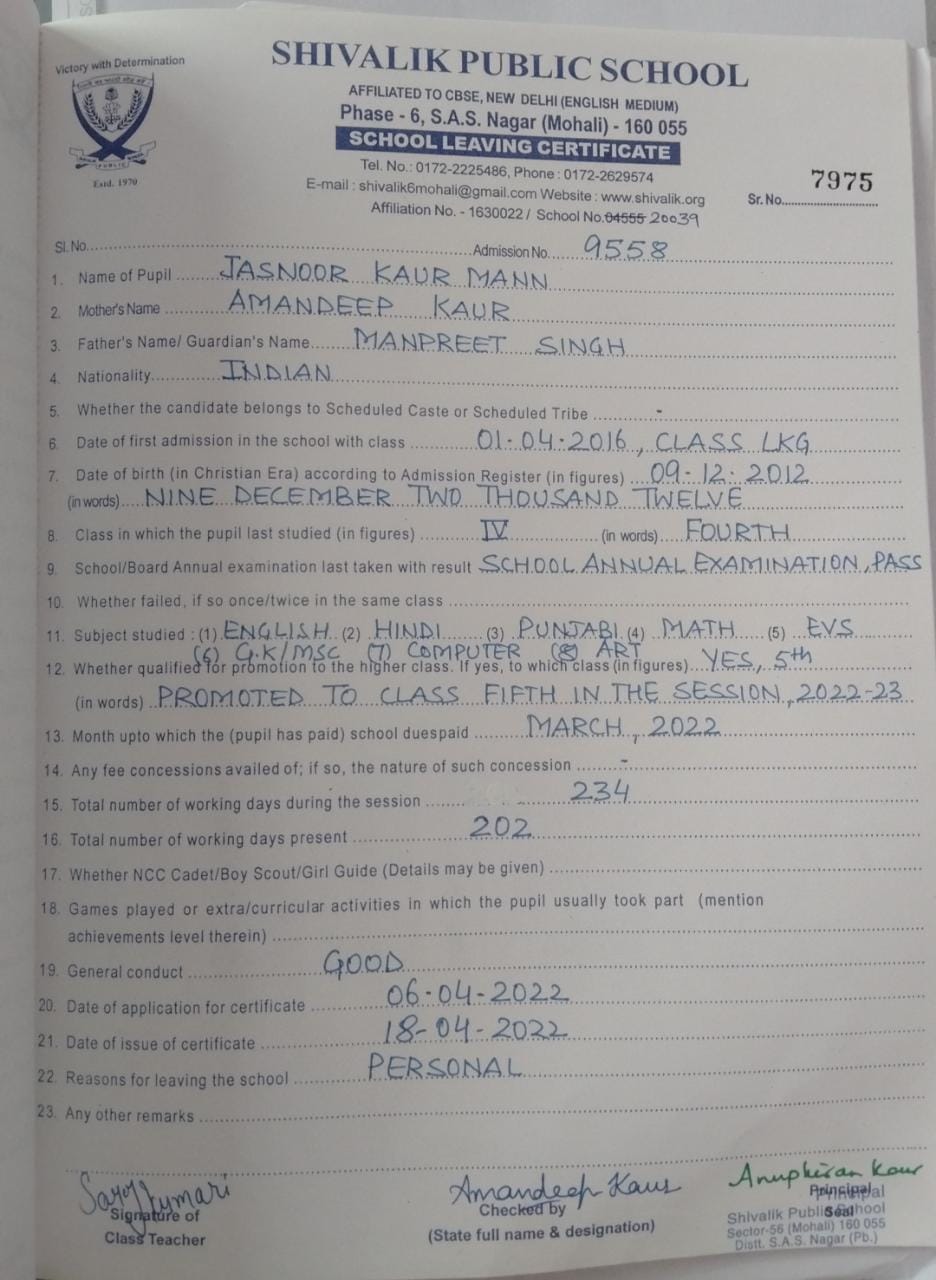 Victory with Determination
PUBLIC
Estd. 1970
SHIVALIK PUBLIC SCHOOL
AFFILIATED TO CBSE, NEW DELHI (ENGLISH MEDIUM)
Phase - 6, S.A.S. Nagar (Mohali) - 160 055
SCHOOL LEAVING CERTIFICATE
Tel. No.: 0172-2225486, Phone : 0172-2629574
E-mail : shivalik6mohali@gmail.com Website : www.shivalik.org
Affiliation No. - 1630022 / School No.04555 20039
7975
Sr. No..........................
Sl. No.......................... Admission No. 9558
1. Name of Pupil ....... JASNOOR KAUR MANN
2. Mother's Name ....... AMANDEEP KAUR
3. Father's Name/ Guardian's Name...... MANPREET SINGH
4. Nationality............ INDIAN
5. Whether the candidate belongs to Scheduled Caste or Scheduled Tribe ............ -
6. Date of first admission in the school with class ............ 01-04-2016, CLASS LKG
7. Date of birth (in Christian Era) according to Admission Register (in figures) .... 09-12-2012
(in words).... NINE DECEMBER TWO THOUSAND TWELVE
8. Class in which the pupil last studied (in figures) ............ IV ............ (in words).... FOURTH
9. School/Board Annual examination last taken with result SCHOOL ANNUAL EXAMINATION, PASS
10. Whether failed, if so once/twice in the same class ............
11. Subject studied : (1) ENGLISH (2) HINDI (3) PUNJABI (4) MATH (5) EVS
(6) G.K/MSC (7) COMPUTER (8) ART
12. Whether qualified for promotion to the higher class. If yes, to which class (in figures).... YES, 5th
(in words) .. PROMOTED TO CLASS FIFTH IN THE SESSION, 2022-23
13. Month upto which the (pupil has paid) school duespaid .......... MARCH, 2022
14. Any fee concessions availed of; if so, the nature of such concession .......... -
15. Total number of working days during the session ............ 234
16. Total number of working days present ............ 202
17. Whether NCC Cadet/Boy Scout/Girl Guide (Details may be given) ............
18. Games played or extra/curricular activities in which the pupil usually took part (mention
achievements level therein) ............
19. General conduct ............ GOOD
20. Date of application for certificate ............ 06-04-2022
21. Date of issue of certificate ............ 18-04-2022
22. Reasons for leaving the school ............ PERSONAL
23. Any other remarks ............
Kumari
Signature of
Class Teacher
Amandeep Kaur
Checked by
(State full name & designation)
Anupkiran Kaur
Principal
Principal
Seal
Shivalik Public School
Sector-56 (Mohali) 160 055
Distt. S.A.S. Nagar (Pb.)